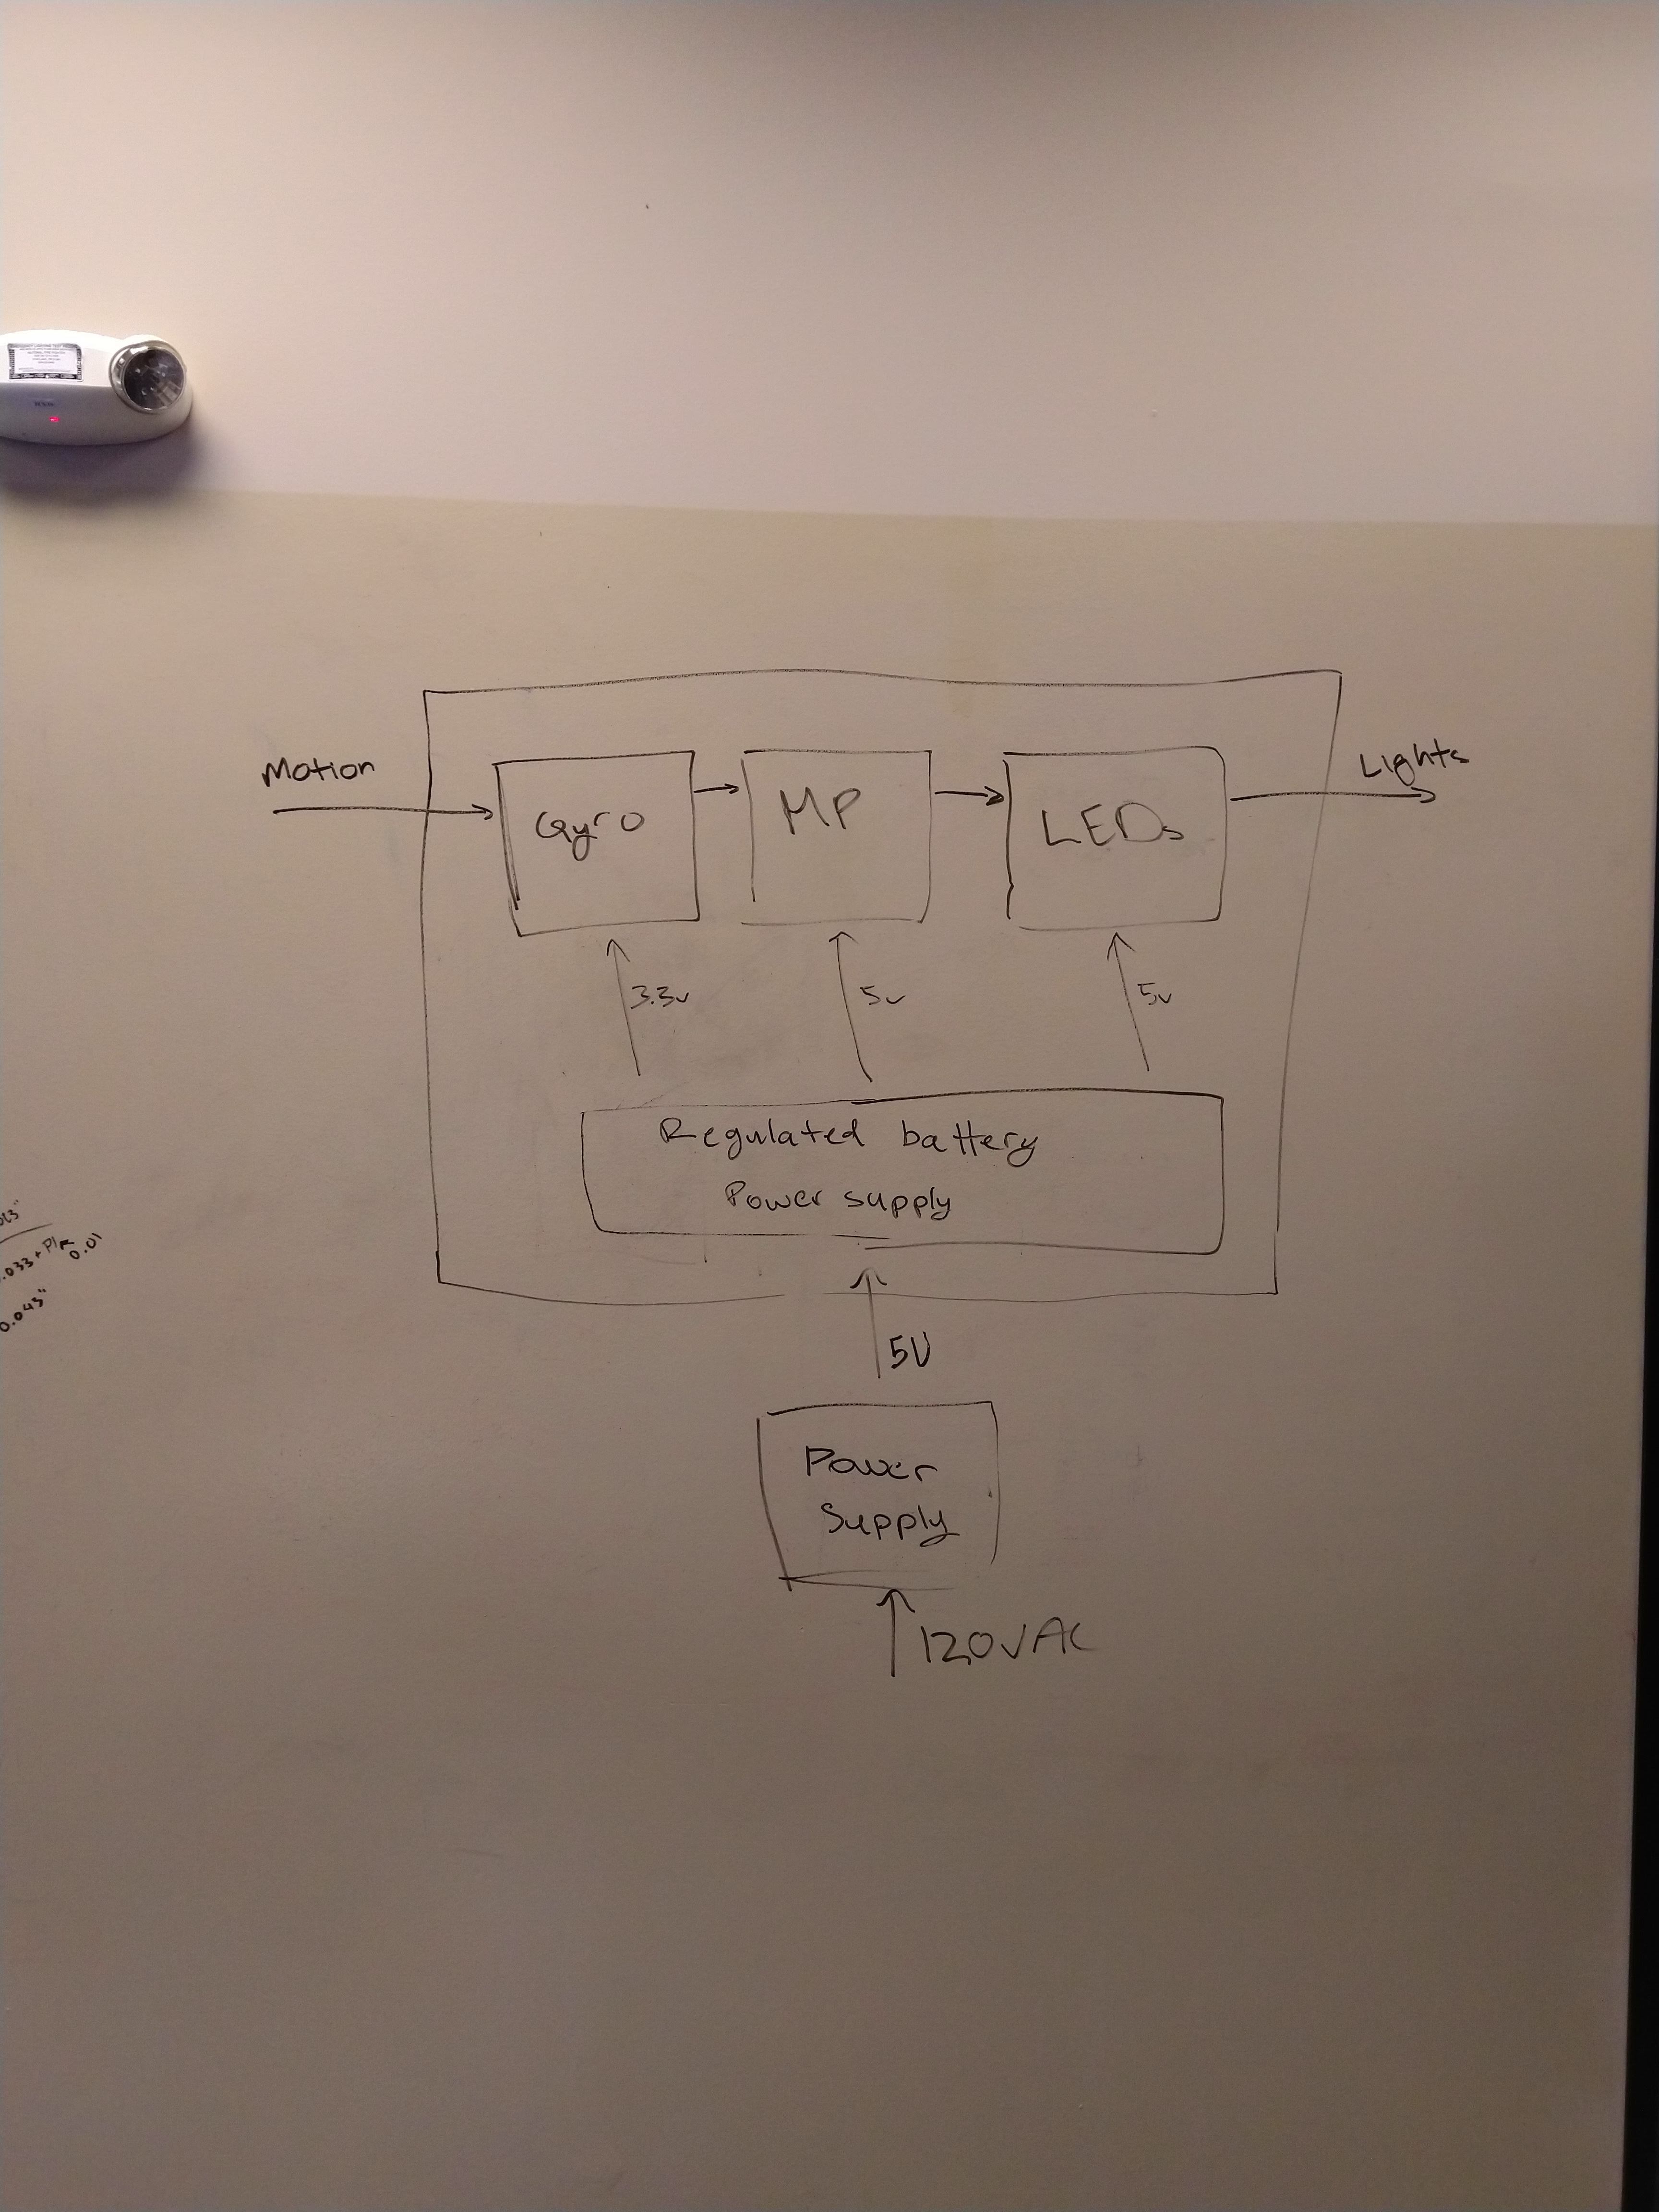 Motion
Lights
Gyro
MP
LEDs
3.3v
5v
5v
Regulated battery
Power supply
5V
Power
Supply
120VAC
.033 +
0.01
0.043"